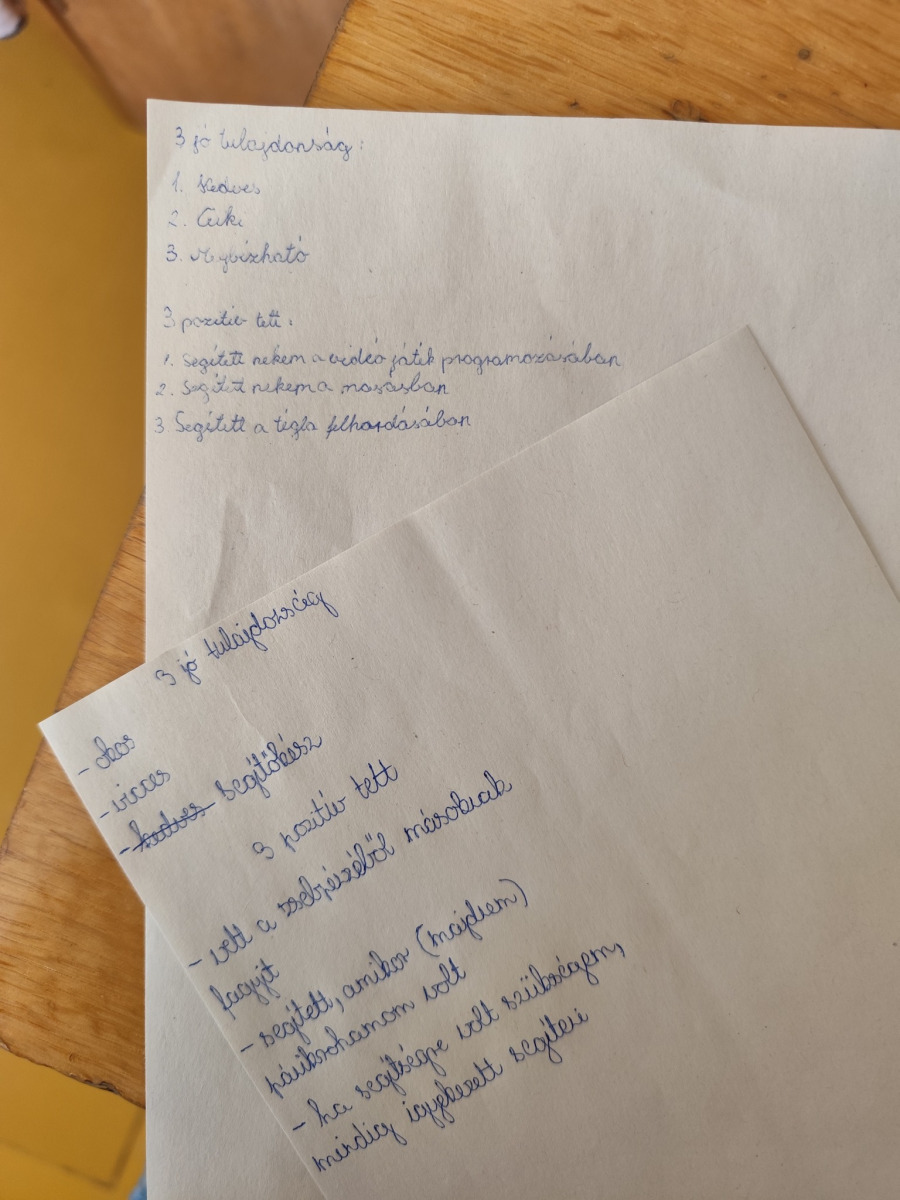 3 jó tulajdonság:
1. Kedves
2. Cuki
3. Megbízható
3 pozitív tett:
1. Segített nekem a videó játék programozásában
2. Segített nekem a mosásban
3. Segített a tégla felhordásában
3 jó tulajdonság
- okos
- vicces
- kedves segítőkész
3 pozitív tett
- vett a zsebpézéből másoknak
fagyit
- segített, amikor (majdnem)
pánikrohamom volt
- ha segítségre volt szükségem,
mindig igyekezett segíteni